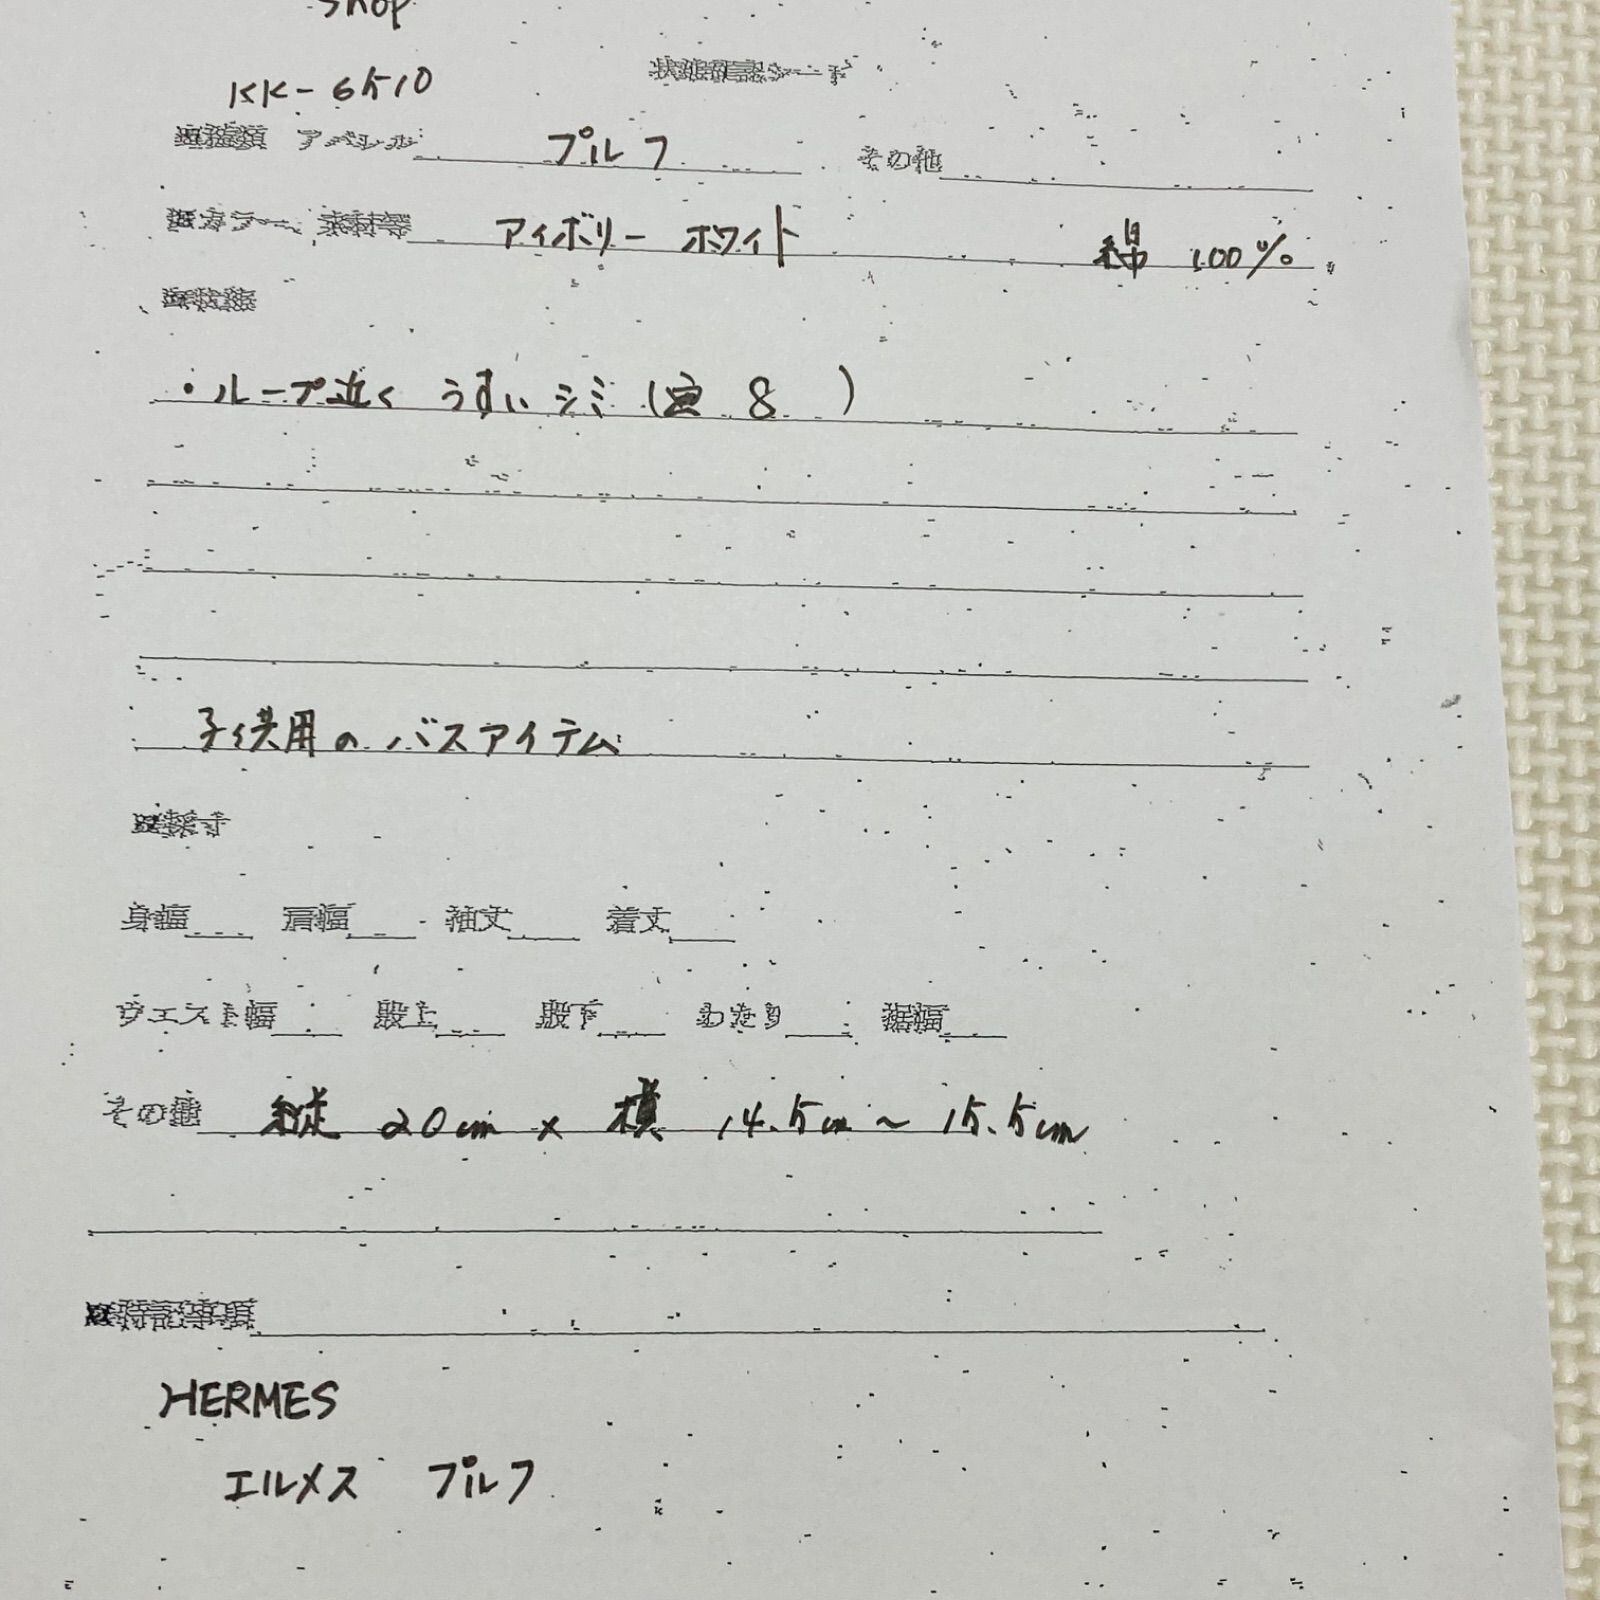 shop
状態確認シート
KK-6510
種類 アパレル プルフ その他
カラー 素材等 アイボリー ホワイト 綿 100%
状態
・ループ近く うすいシミ ( 8 )
子供用の バスアイテム
採寸
身幅 肩幅 袖丈 着丈
ウエスト幅 股上 股下 わたり 裾幅
その他 縦 20cm × 横 14.5cm ~ 15.5cm
特記事項
HERMES
エルメス プルフ